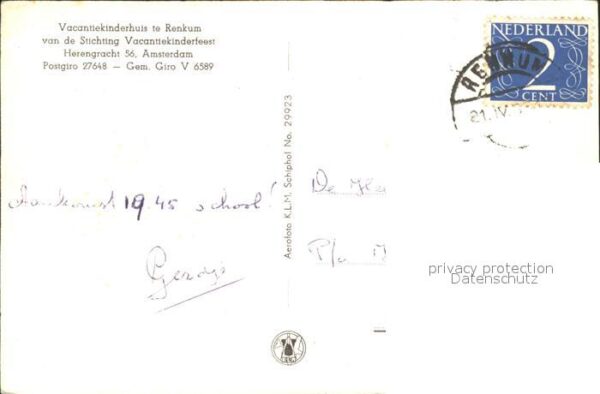 Vacantiekinderhuis te Renkum
van de Stichting Vacantiekinderfeest
Herengracht 56, Amsterdam
Postgiro 27648 — Gem. Giro V 6589
NEDERLAND
2
CENT
RENKUM
21.IV.
Aerofoto K.L.M. Schiphol No. 29923
Aankomst 19.45 school!
De
P/a
privacy protection
Datenschutz